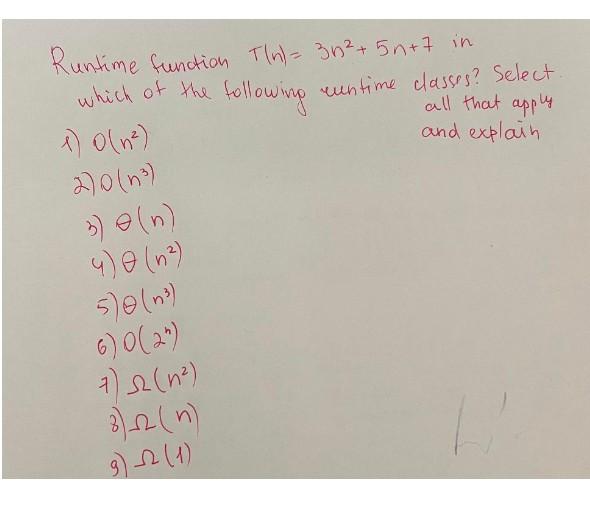 Runtime function T(n) = 3n² + 5n+7 in
which of the following runtime classes? Select
all that apply
and explain
1) O(n²)
2) O(n³)
3) Θ(n)
4) Θ(n²)
5) Θ(n³)
6) O(2ⁿ)
7) Ω(n²)
8) Ω(n)
9) Ω(1)